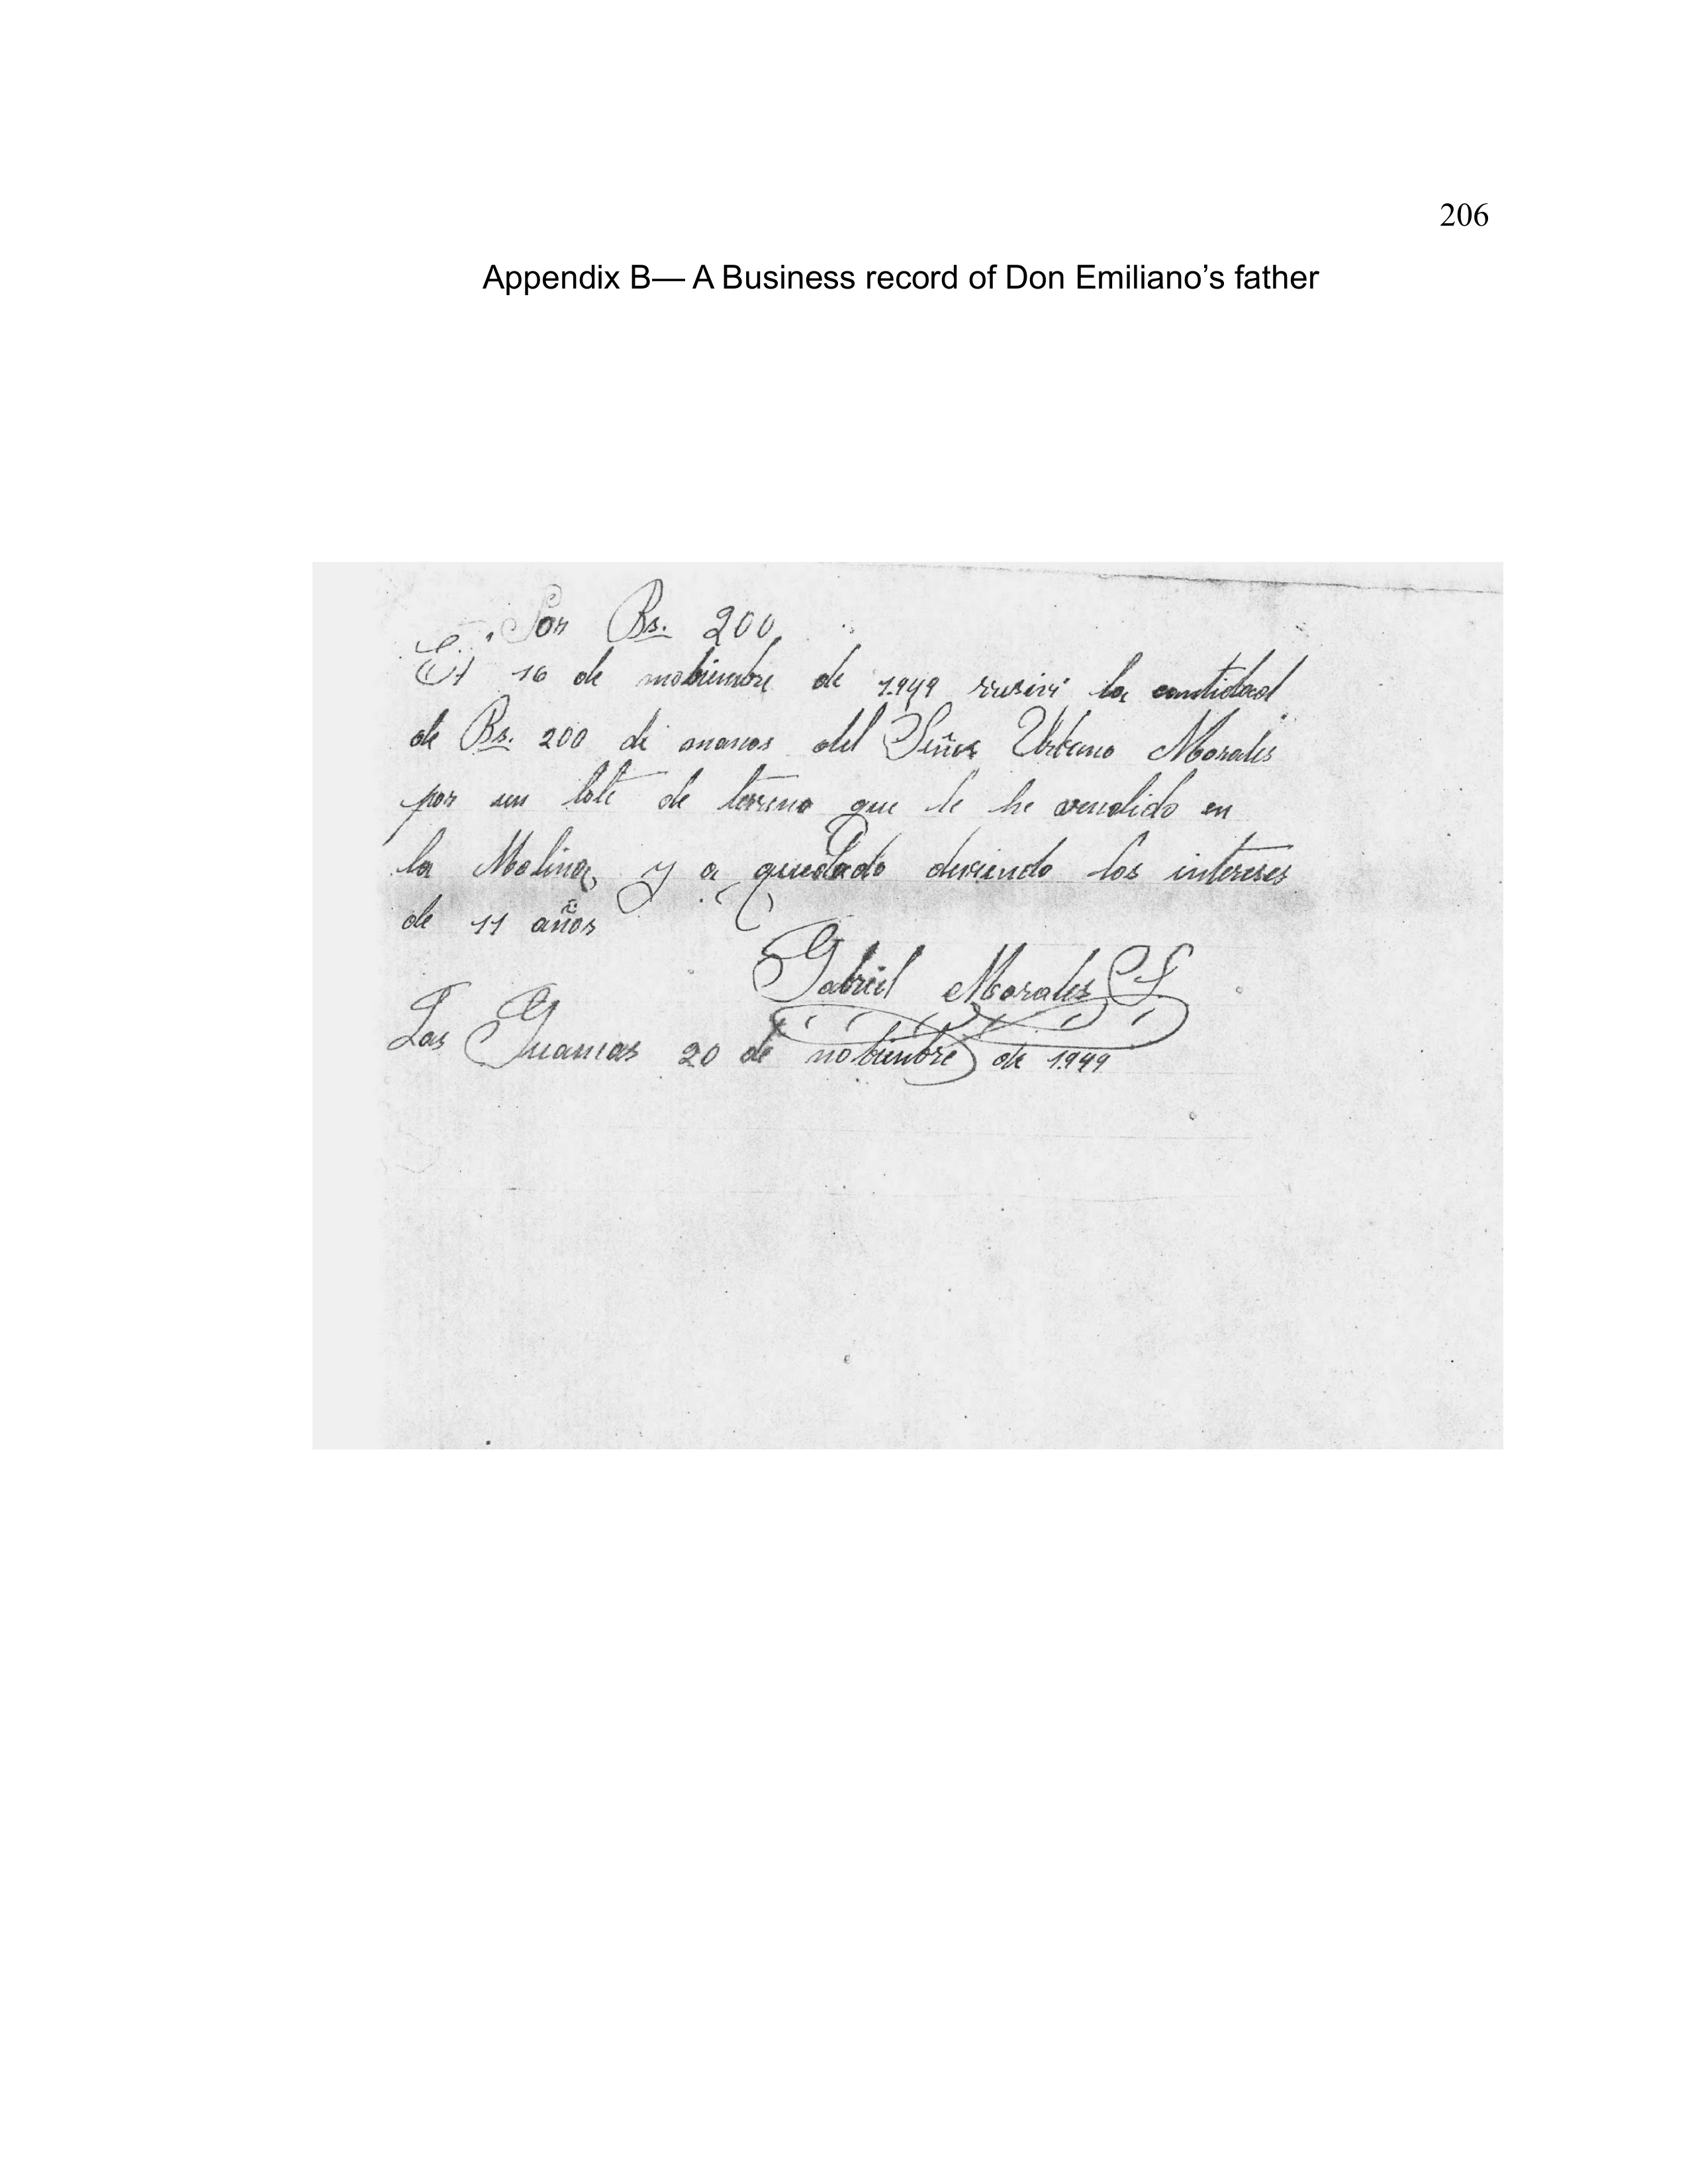 206
Appendix B— A Business record of Don Emiliano's father
Por Bs. 200
El 16 de nobiembre de 1.949 rresivi la cantidad
de Bs. 200 de manos del Señor Urbano Morales
por un lote de terreno que le he vendido en
la Molina, y a quedado deviendo los intereses
de 11 años
Gabriel Morales
Las 20 de nobiembre de 1.949